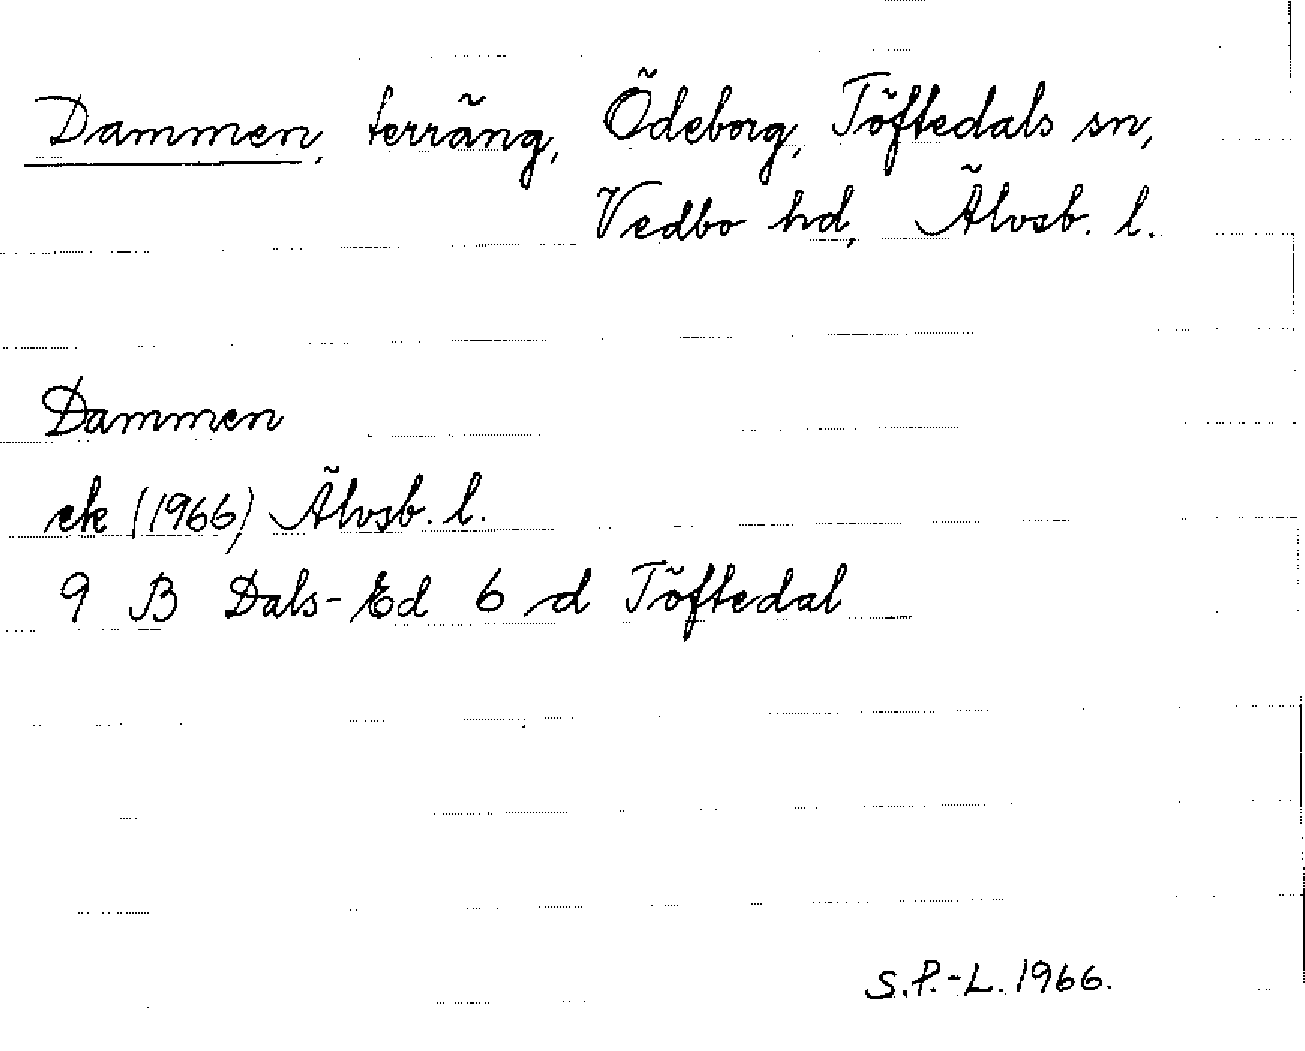 Dammen, terräng, Ödeborg, Töftedals sn,
Vedbo hd, Älvsb. l.
Dammen
ek (1966) Älvsb. l.
9 B Dals-Ed 6 d Töftedal
S.P.-L. 1966.